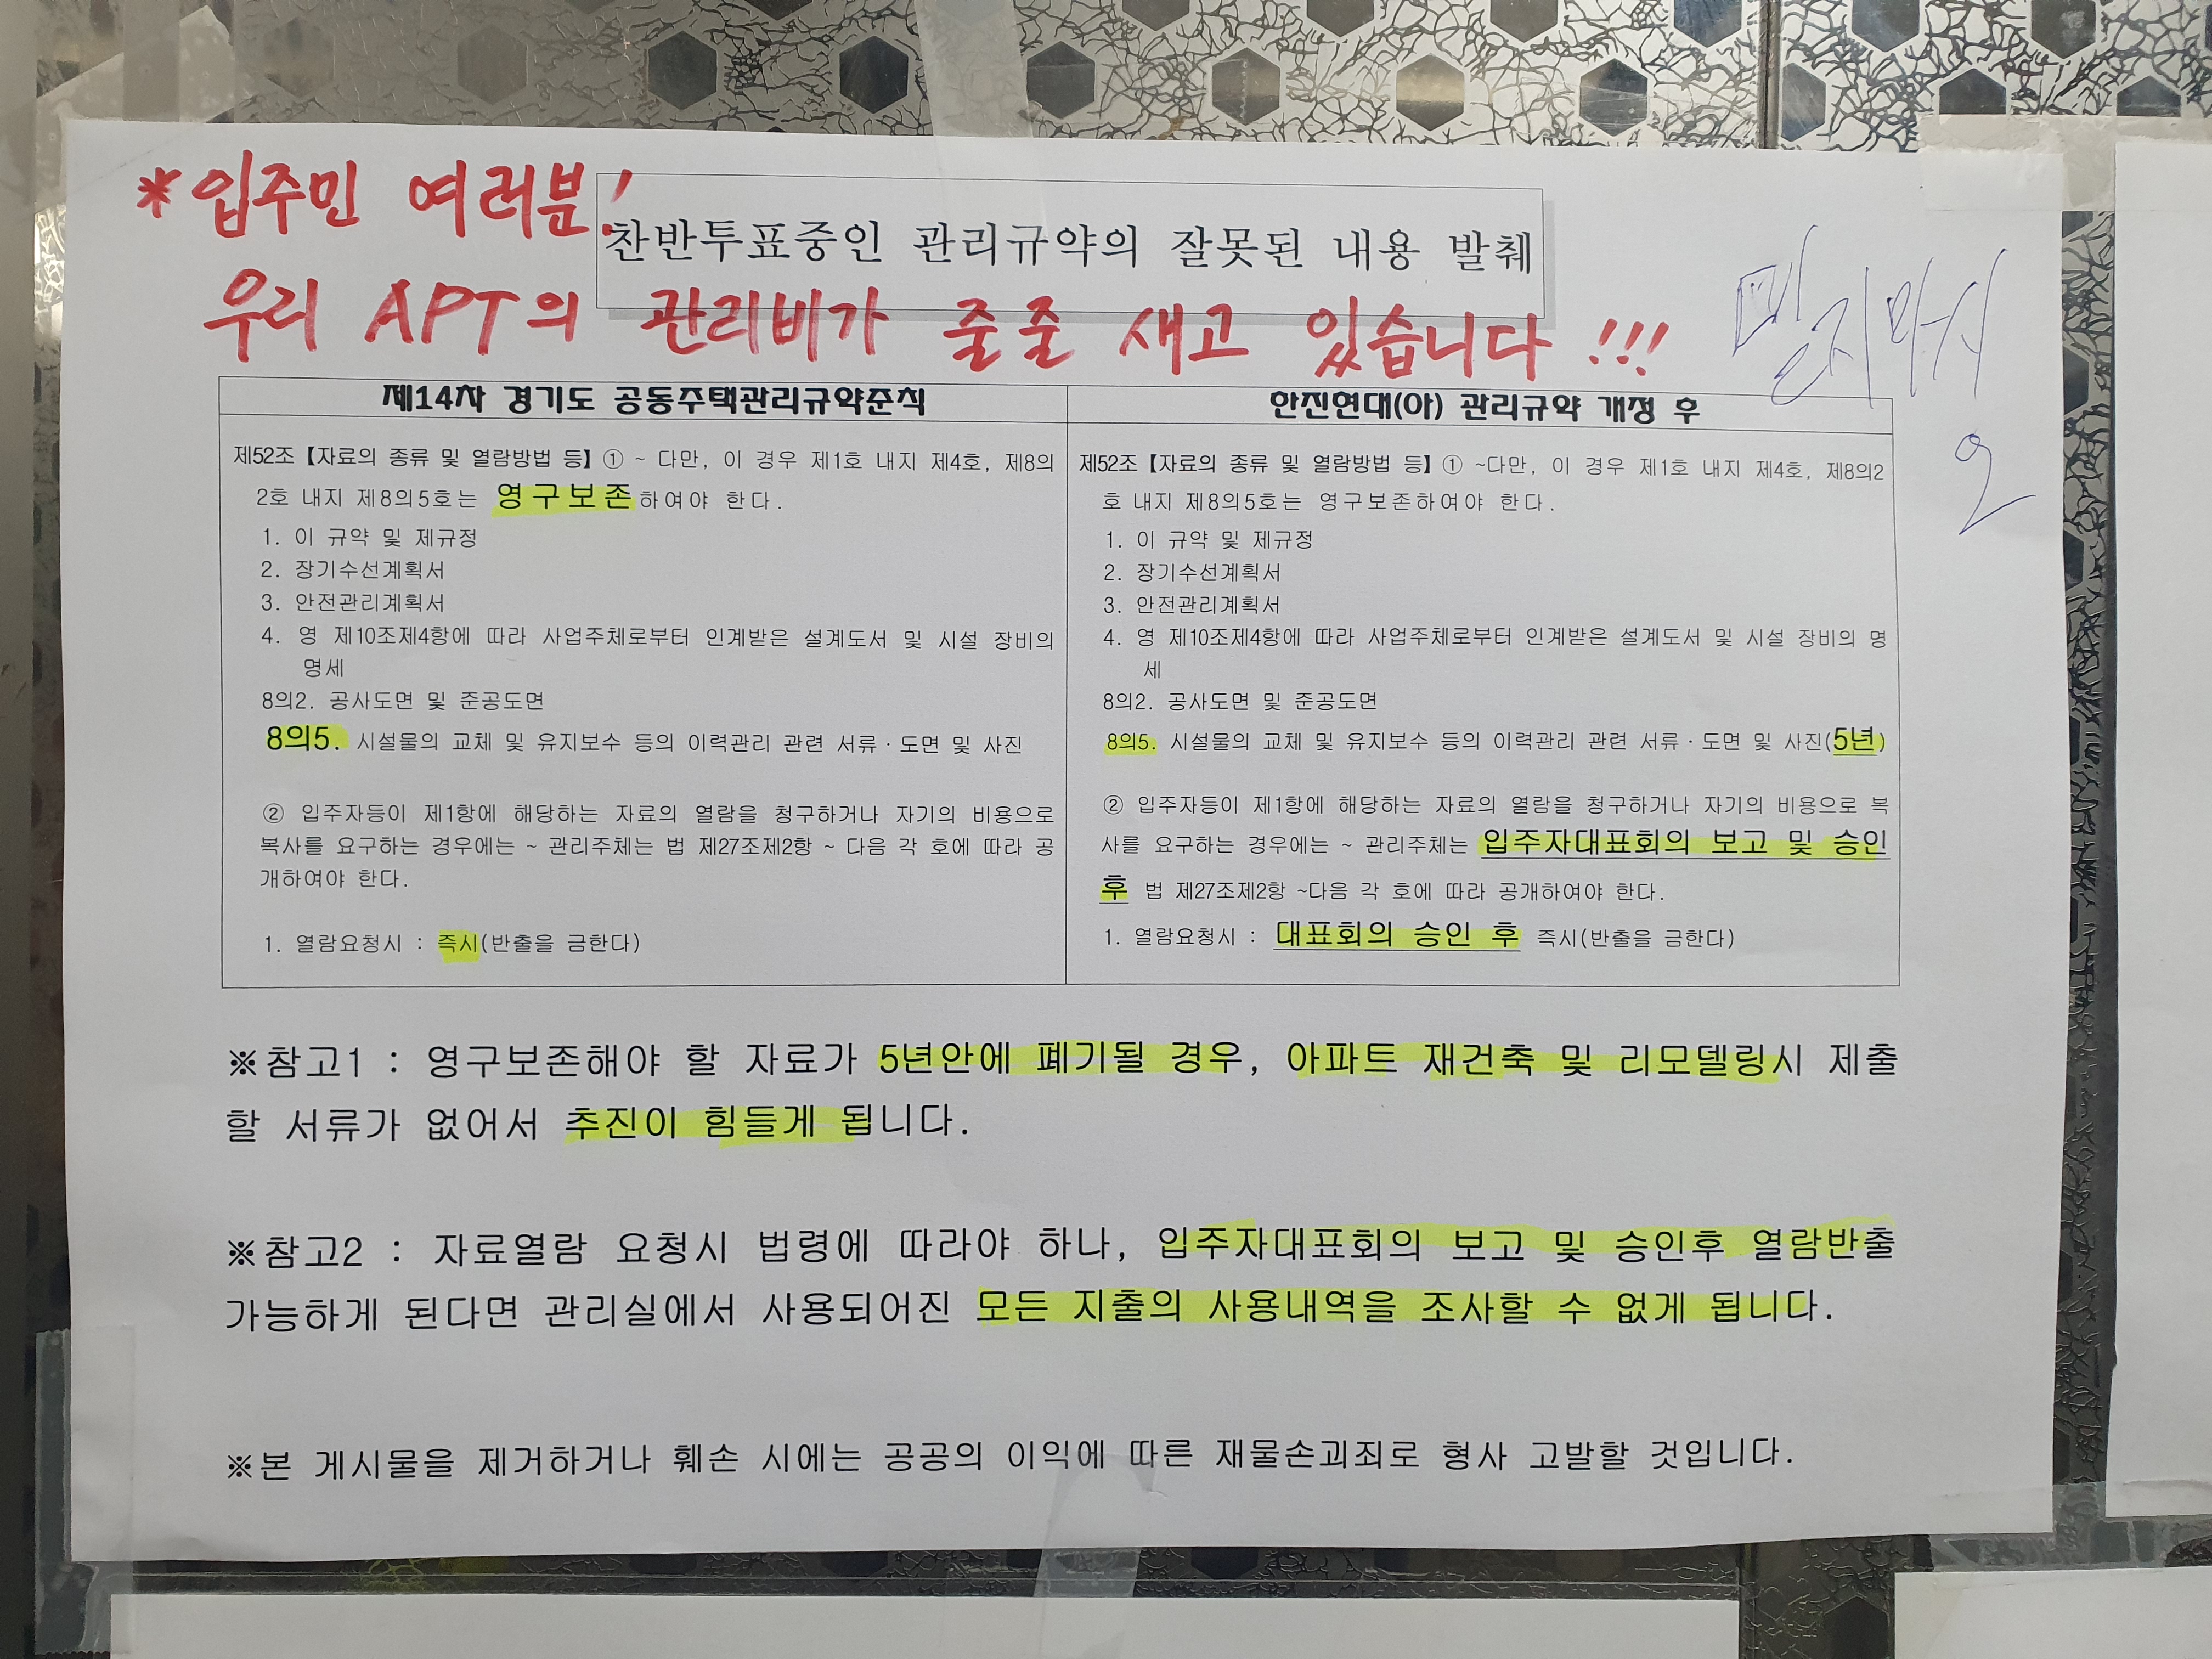 *입주민 여러분!
찬반투표중인 관리규약의 잘못된 내용 발췌
우리 APT의 관리비가 줄줄 새고 있습니다!!!
믿지마시
오
제14차 경기도 공동주택관리규약준칙
제52조【자료의 종류 및 열람방법 등】① ~ 다만, 이 경우 제1호 내지 제4호, 제8의
2호 내지 제8의5호는 영구보존하여야 한다.
1. 이 규약 및 제규정
2. 장기수선계획서
3. 안전관리계획서
4. 영 제10조제4항에 따라 사업주체로부터 인계받은 설계도서 및 시설 장비의
명세
8의2. 공사도면 및 준공도면
8의5. 시설물의 교체 및 유지보수 등의 이력관리 관련 서류·도면 및 사진
② 입주자등이 제1항에 해당하는 자료의 열람을 청구하거나 자기의 비용으로
복사를 요구하는 경우에는 ~ 관리주체는 법 제27조제2항 ~ 다음 각 호에 따라 공
개하여야 한다.
1. 열람요청시 : 즉시(반출을 금한다)
한진현대(아) 관리규약 개정 후
제52조【자료의 종류 및 열람방법 등】① ~다만, 이 경우 제1호 내지 제4호, 제8의2
호 내지 제8의5호는 영구보존하여야 한다.
1. 이 규약 및 제규정
2. 장기수선계획서
3. 안전관리계획서
4. 영 제10조제4항에 따라 사업주체로부터 인계받은 설계도서 및 시설 장비의 명
세
8의2. 공사도면 및 준공도면
8의5. 시설물의 교체 및 유지보수 등의 이력관리 관련 서류·도면 및 사진(5년)
② 입주자등이 제1항에 해당하는 자료의 열람을 청구하거나 자기의 비용으로 복
사를 요구하는 경우에는 ~ 관리주체는 입주자대표회의 보고 및 승인
후 법 제27조제2항 ~다음 각 호에 따라 공개하여야 한다.
1. 열람요청시 : 대표회의 승인 후 즉시(반출을 금한다)
※참고1 : 영구보존해야 할 자료가 5년안에 폐기될 경우, 아파트 재건축 및 리모델링시 제출
할 서류가 없어서 추진이 힘들게 됩니다.
※참고2 : 자료열람 요청시 법령에 따라야 하나, 입주자대표회의 보고 및 승인후 열람반출
가능하게 된다면 관리실에서 사용되어진 모든 지출의 사용내역을 조사할 수 없게 됩니다.
※본 게시물을 제거하거나 훼손 시에는 공공의 이익에 따른 재물손괴죄로 형사 고발할 것입니다.